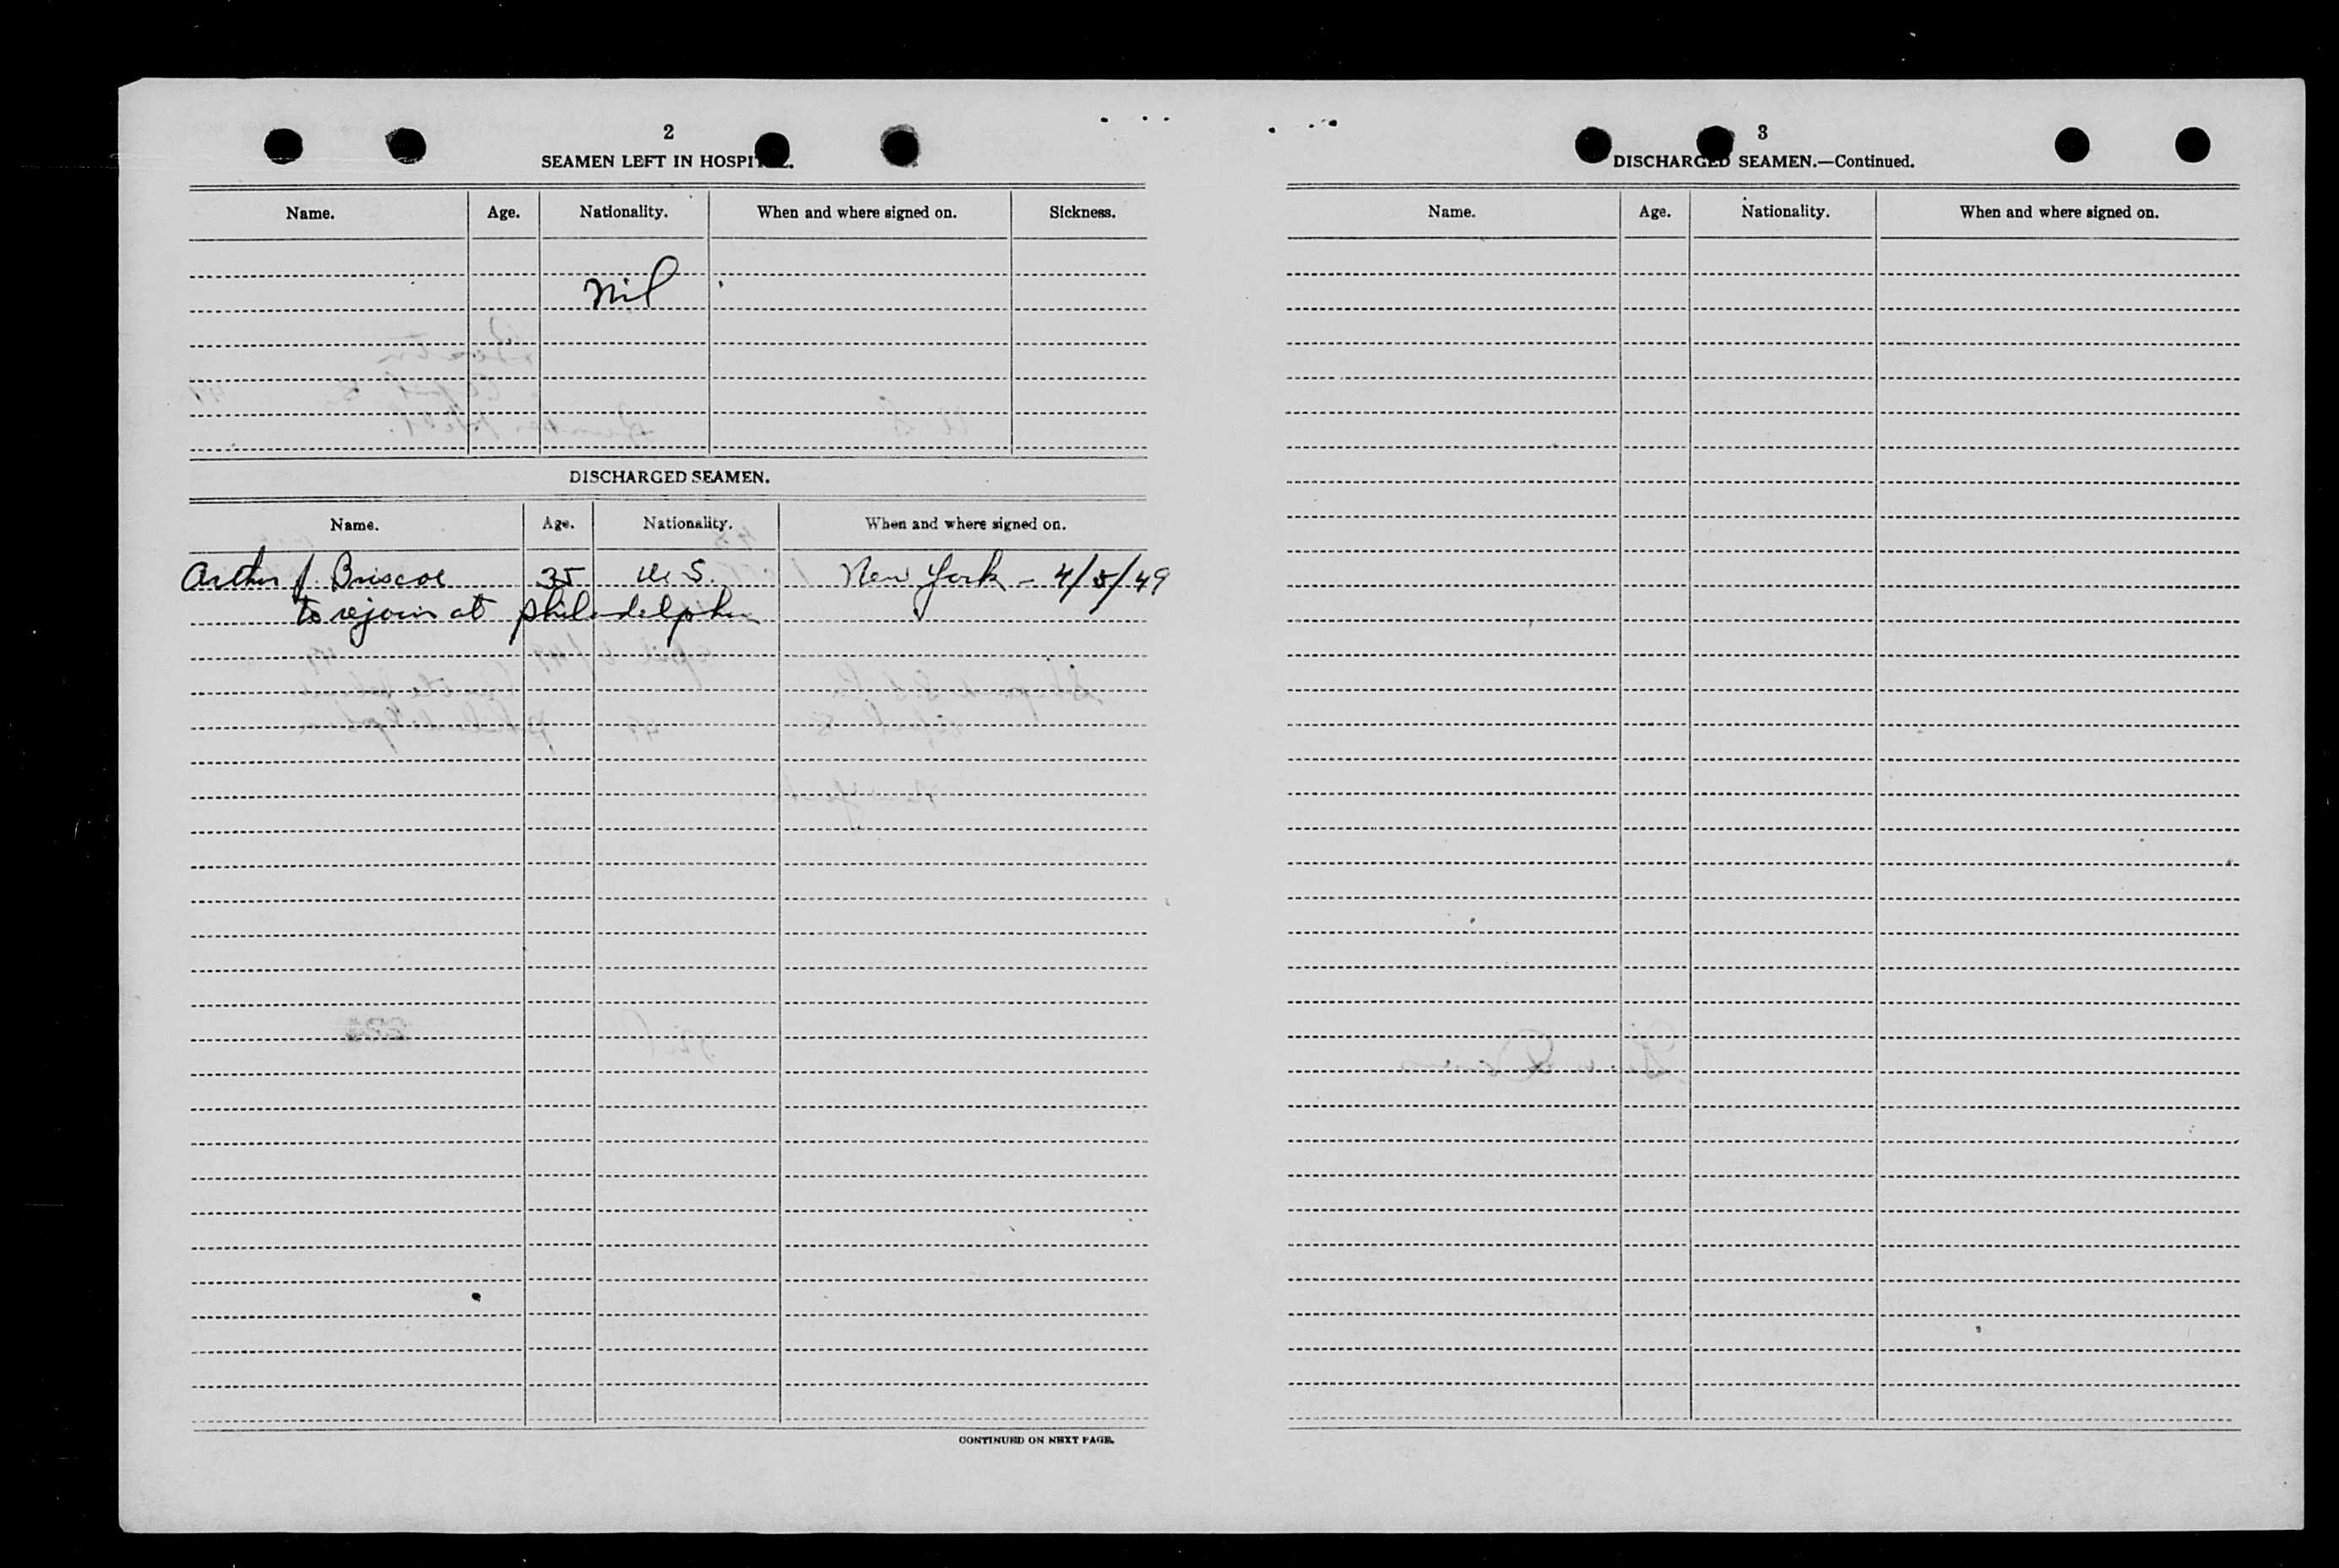 2
SEAMEN LEFT IN HOSPITAL.
Name. Age. Nationality. When and where signed on. Sickness.
Nil
DISCHARGED SEAMEN.
Name. Age. Nationality. When and where signed on.
Arthur J. Briscoe 35 U.S. New York - 4/5/49
to rejoin at Philadelphia
CONTINUED ON NEXT PAGE.
3
DISCHARGED SEAMEN.—Continued.
Name. Age. Nationality. When and where signed on.